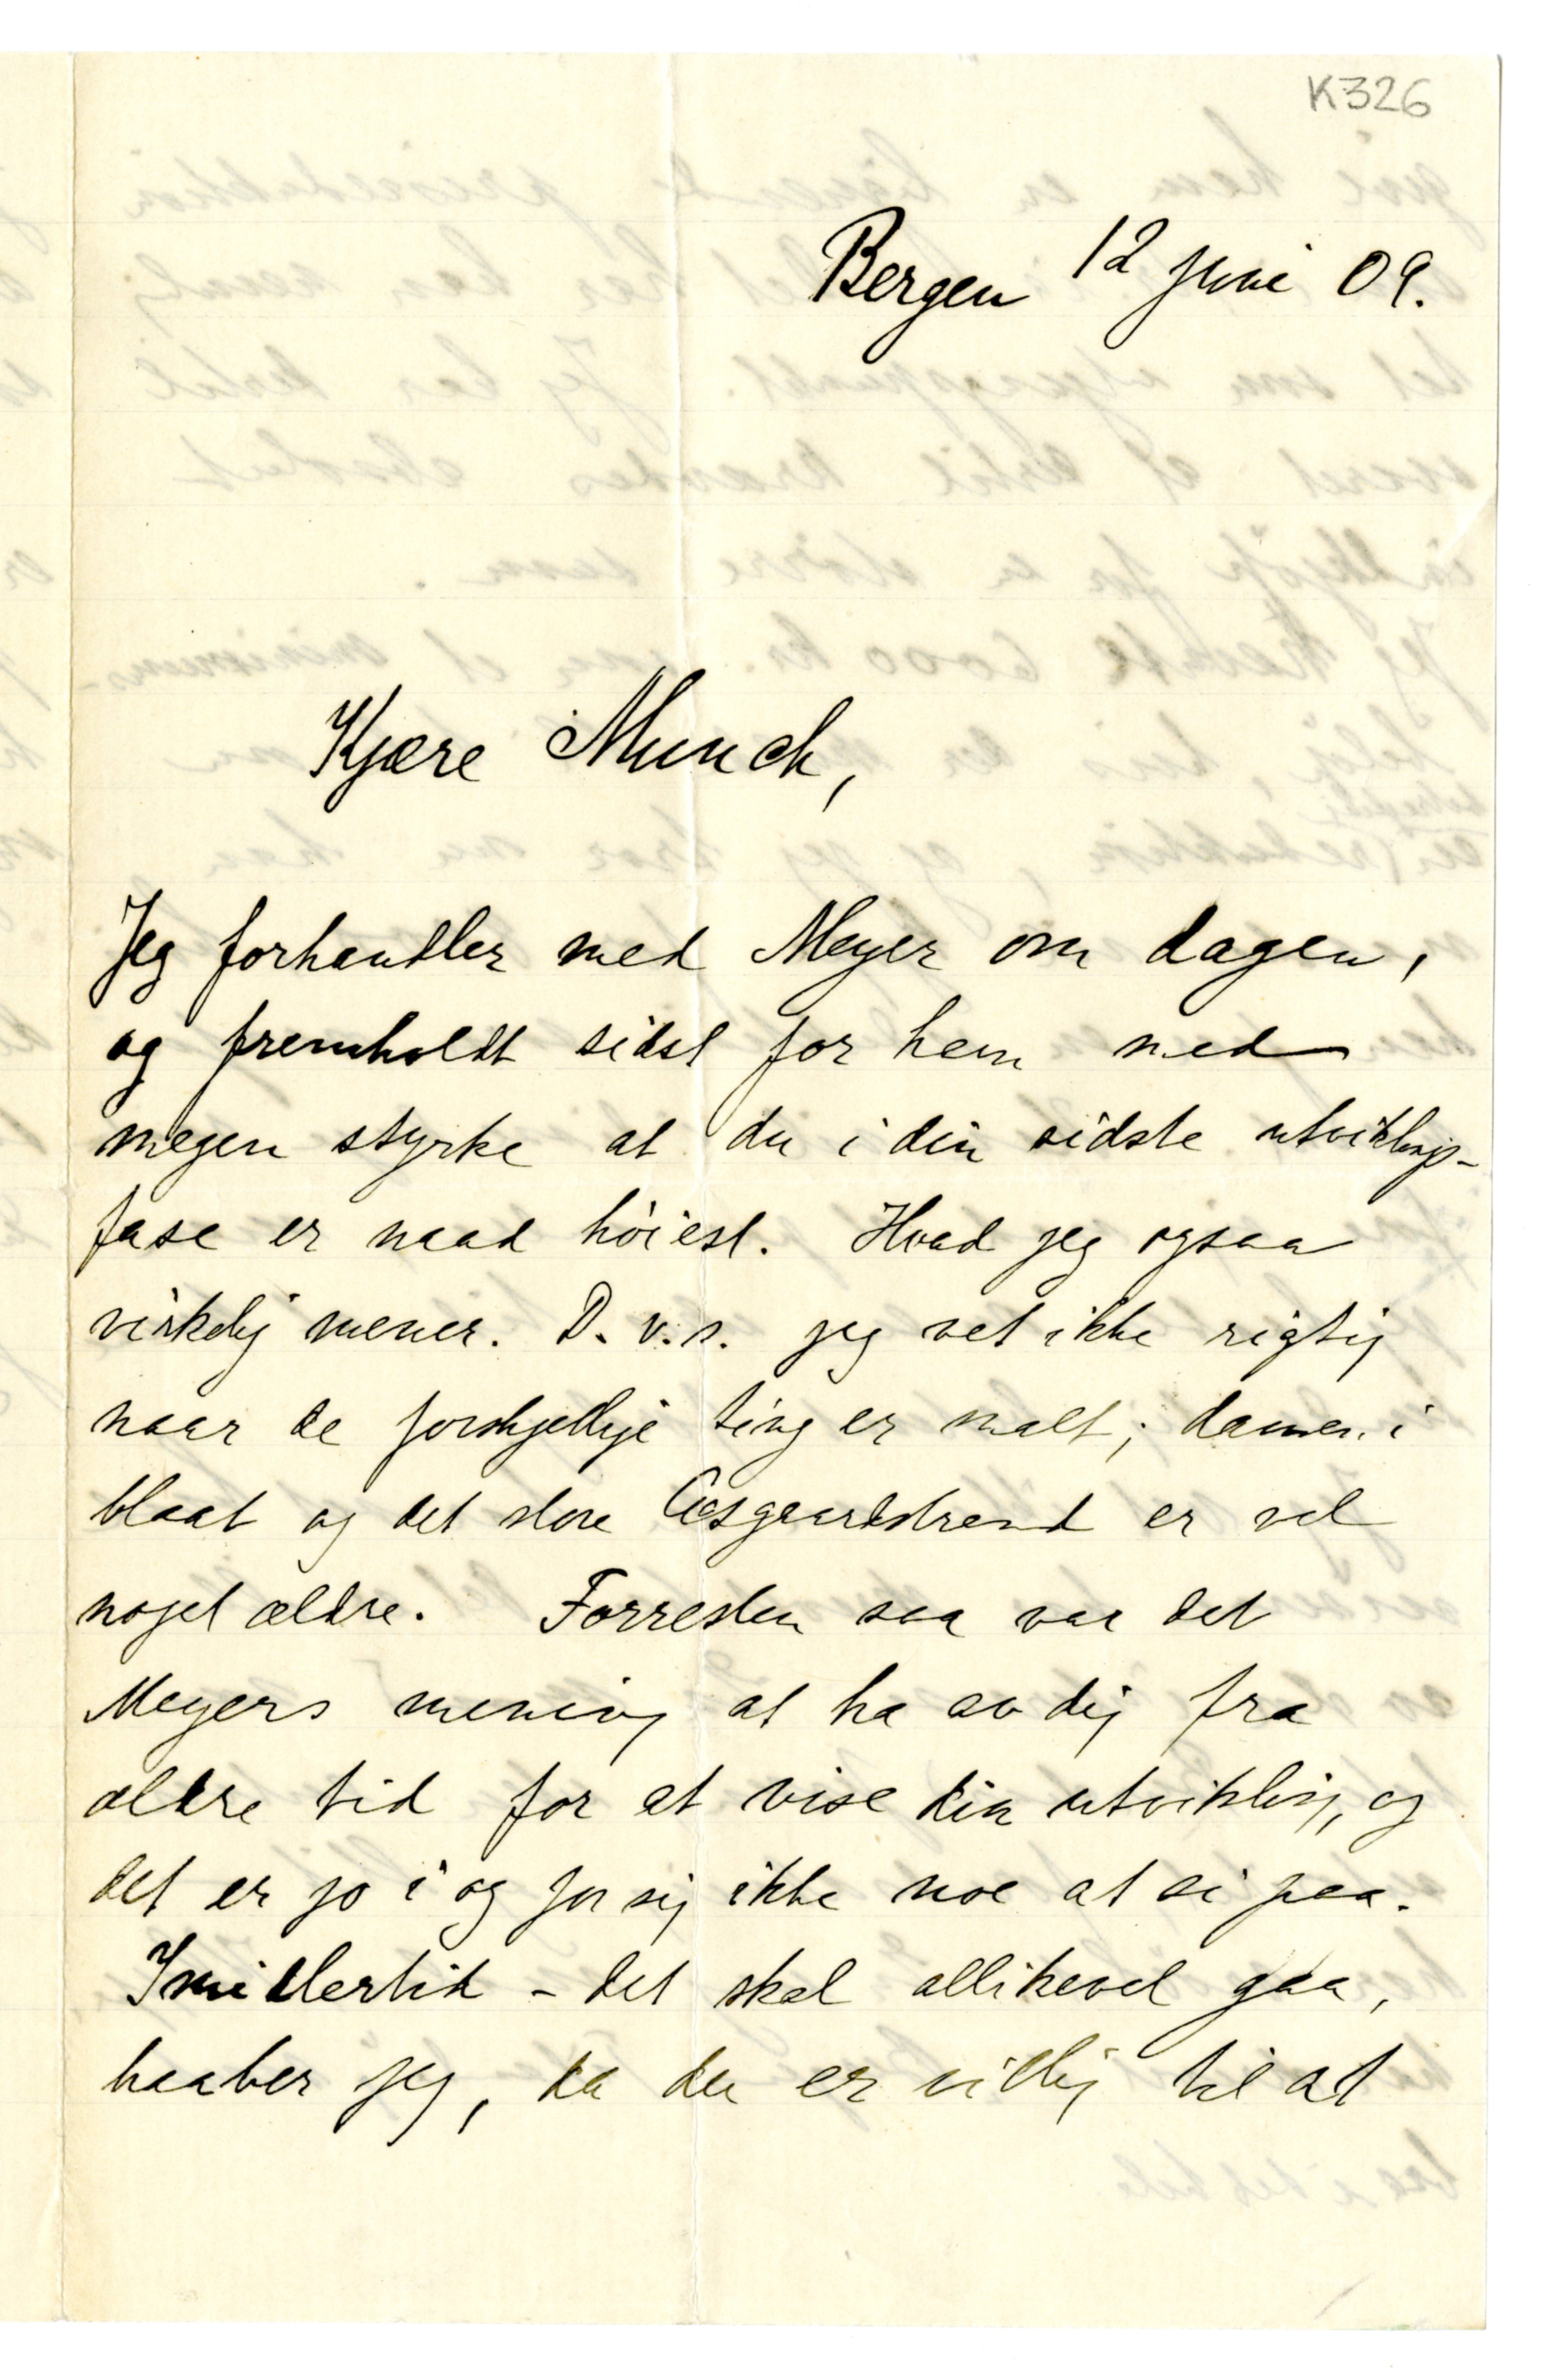 K326
Bergen 12 juni 09.
Kjære Munch,
Jeg forhandler med Meyer om dagen,
og fremholdt sidst for ham med
megen styrke at du i din sidste utviklings-
fase er naad höiest. Hvad jeg ogsaa
virkelig mener. D. v. s. jeg vet ikke rigtig
naar de forskjellige ting er malt; damen i
blaat og det store Aasgaardstrand er vel
noget ældre. Forresten saa var det
Meyers mening at ha av dig fra
ældre tid for at vise din utvikling, og
det er jo i og for sig ikke noe at si paa.
Imidlertid - det skal allikevel gaa,
haaber jeg, da du er villig til at